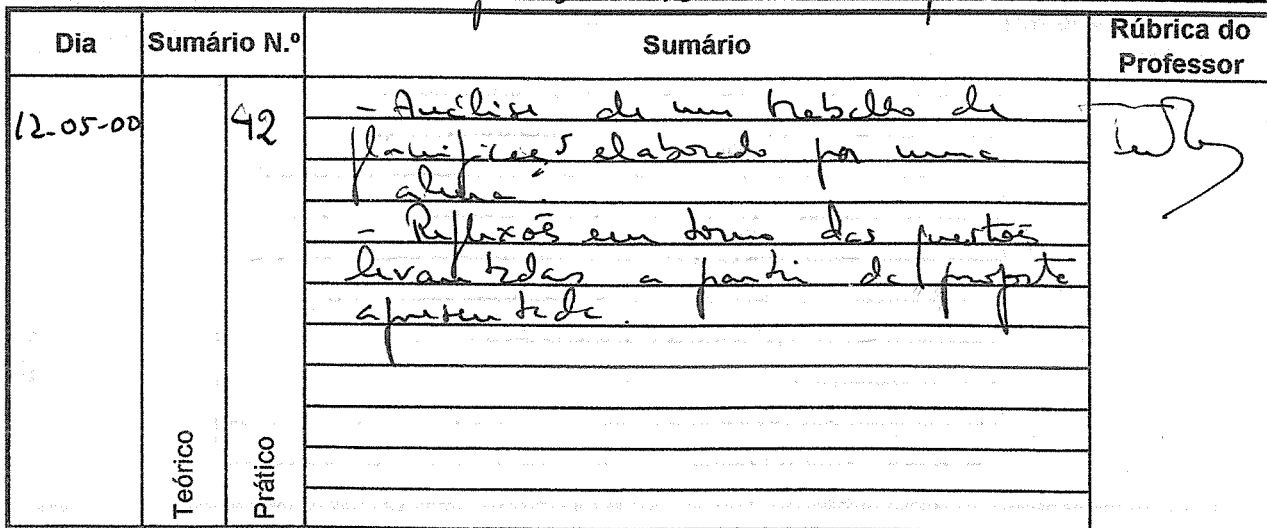 Dia Sumário N.º Sumário Rúbrica do Professor
12-05-00 42 - Análise de um trabalho de
planificação elaborado por uma
aluna.
- Reflexões em torno das questões
levantadas a partir da proposta
apresentada.
Teórico Prático